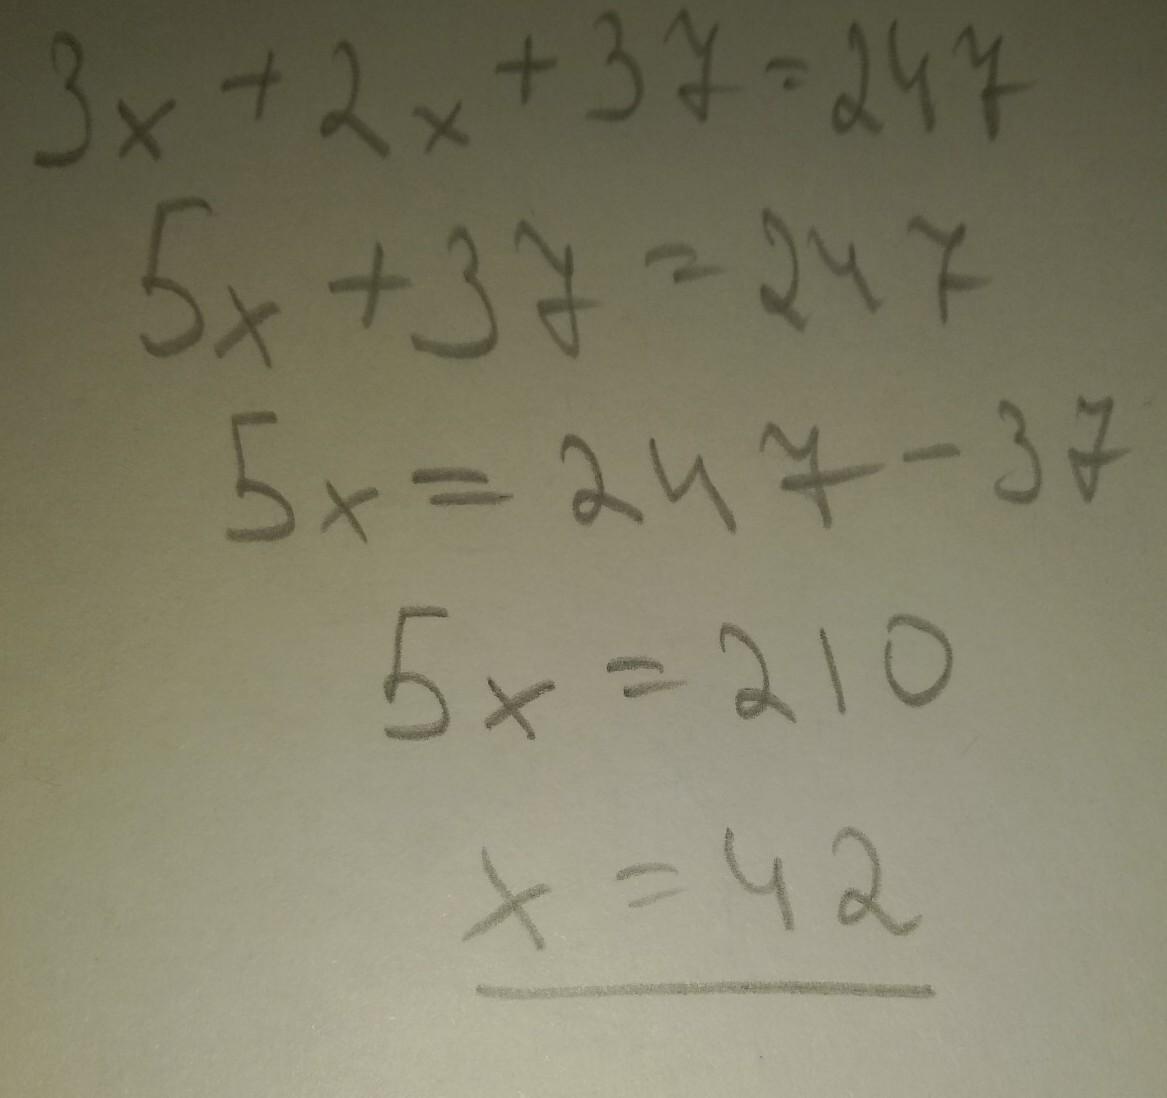 3x + 2x + 37 = 247
5x + 37 = 247
5x = 247 - 37
5x = 210
x = 42